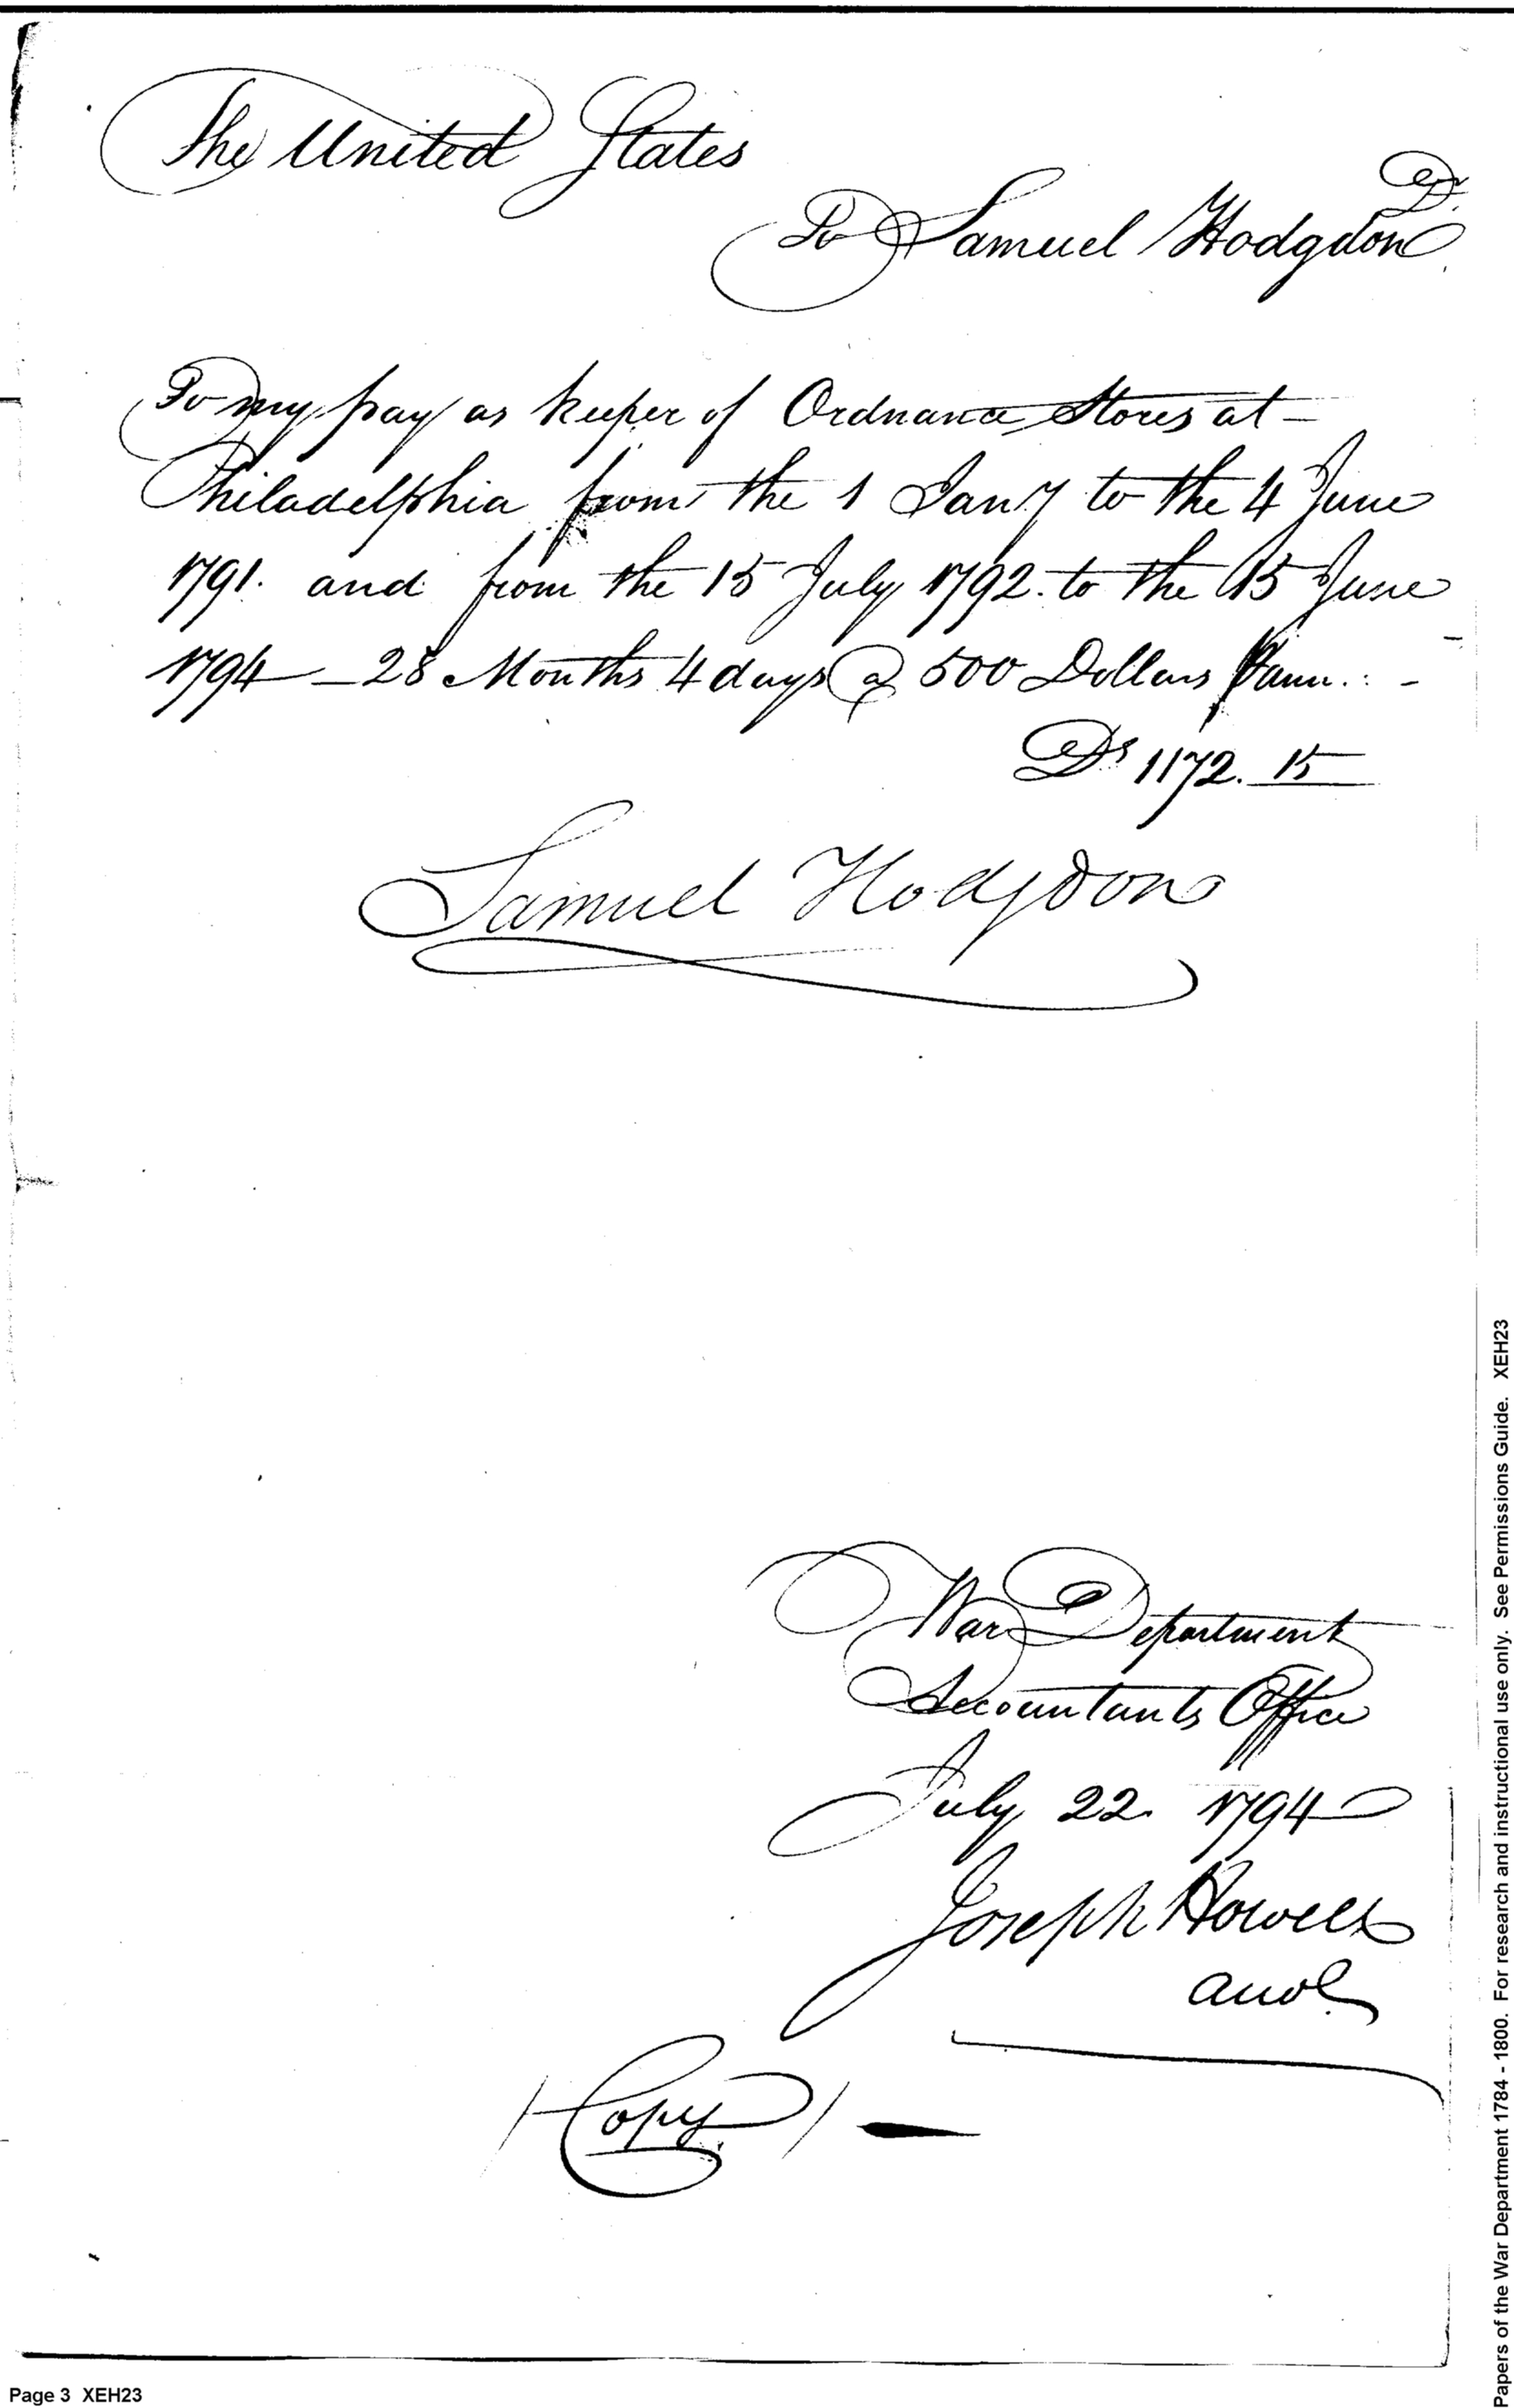 The United States
Dr.
To Samuel Hodgdon
To my pay as keeper of Ordnance Stores at -
Philadelphia from the 1 Jany to the 4 June
1791. and from the 15 July 1792. to the 15 June
1794 - 28 Months 4 days @ 500 Dollars P ann. : -
Ds 1172. 15
Samuel Hodgdon
War Department
Accountants Office
July 22. 1794
Joseph Howell
(Copy)
Page 3 XEH23
Papers of the War Department 1784 - 1800. For research and instructional use only. See Permissions Guide. XEH23